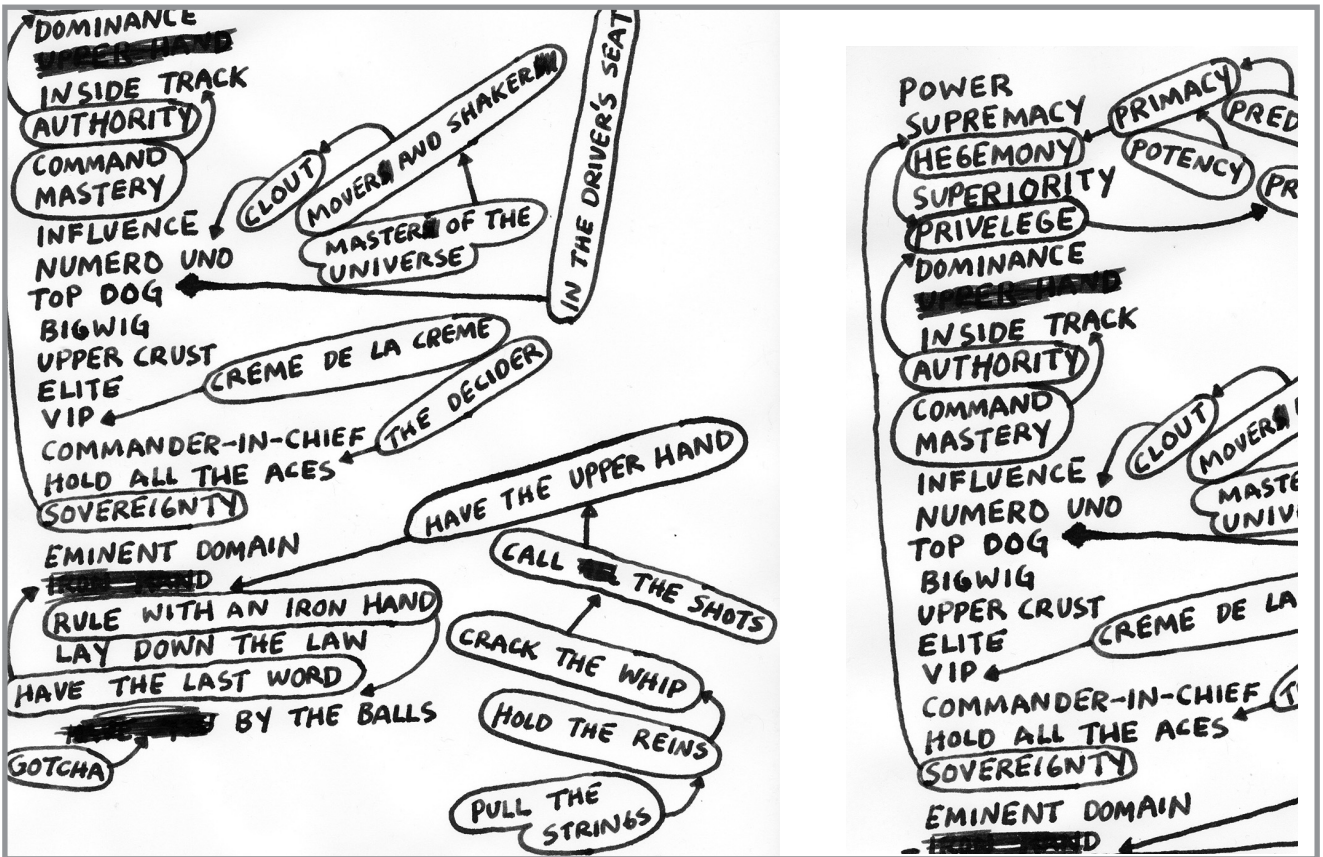 DOMINANCE
UPPER HAND
INSIDE TRACK
AUTHORITY
COMMAND
MASTERY
INFLUENCE
NUMERO UNO
TOP DOG
BIGWIG
UPPER CRUST
ELITE
VIP
COMMANDER-IN-CHIEF
HOLD ALL THE ACES
SOVEREIGNTY
EMINENT DOMAIN
IRON HAND
RULE WITH AN IRON HAND
LAY DOWN THE LAW
HAVE THE LAST WORD
BY THE BALLS
GOTCHA
CLOUT
MOVER AND SHAKER
MASTER OF THE
UNIVERSE
IN THE DRIVER'S SEAT
CREME DE LA CREME
THE DECIDER
HAVE THE UPPER HAND
CALL THE SHOTS
CRACK THE WHIP
HOLD THE REINS
PULL THE
STRINGS
POWER
SUPREMACY
HEGEMONY
SUPERIORITY
PRIVELEGE
DOMINANCE
UPPER HAND
INSIDE TRACK
AUTHORITY
COMMAND
MASTERY
INFLUENCE
NUMERO UNO
TOP DOG
BIGWIG
UPPER CRUST
ELITE
VIP
COMMANDER-IN-CHIEF
HOLD ALL THE ACES
SOVEREIGNTY
EMINENT DOMAIN
IRON HAND
PRIMACY
PRED
POTENCY
PR
CLOUT
MOVER
MASTE
UNIV
CREME DE LA
T